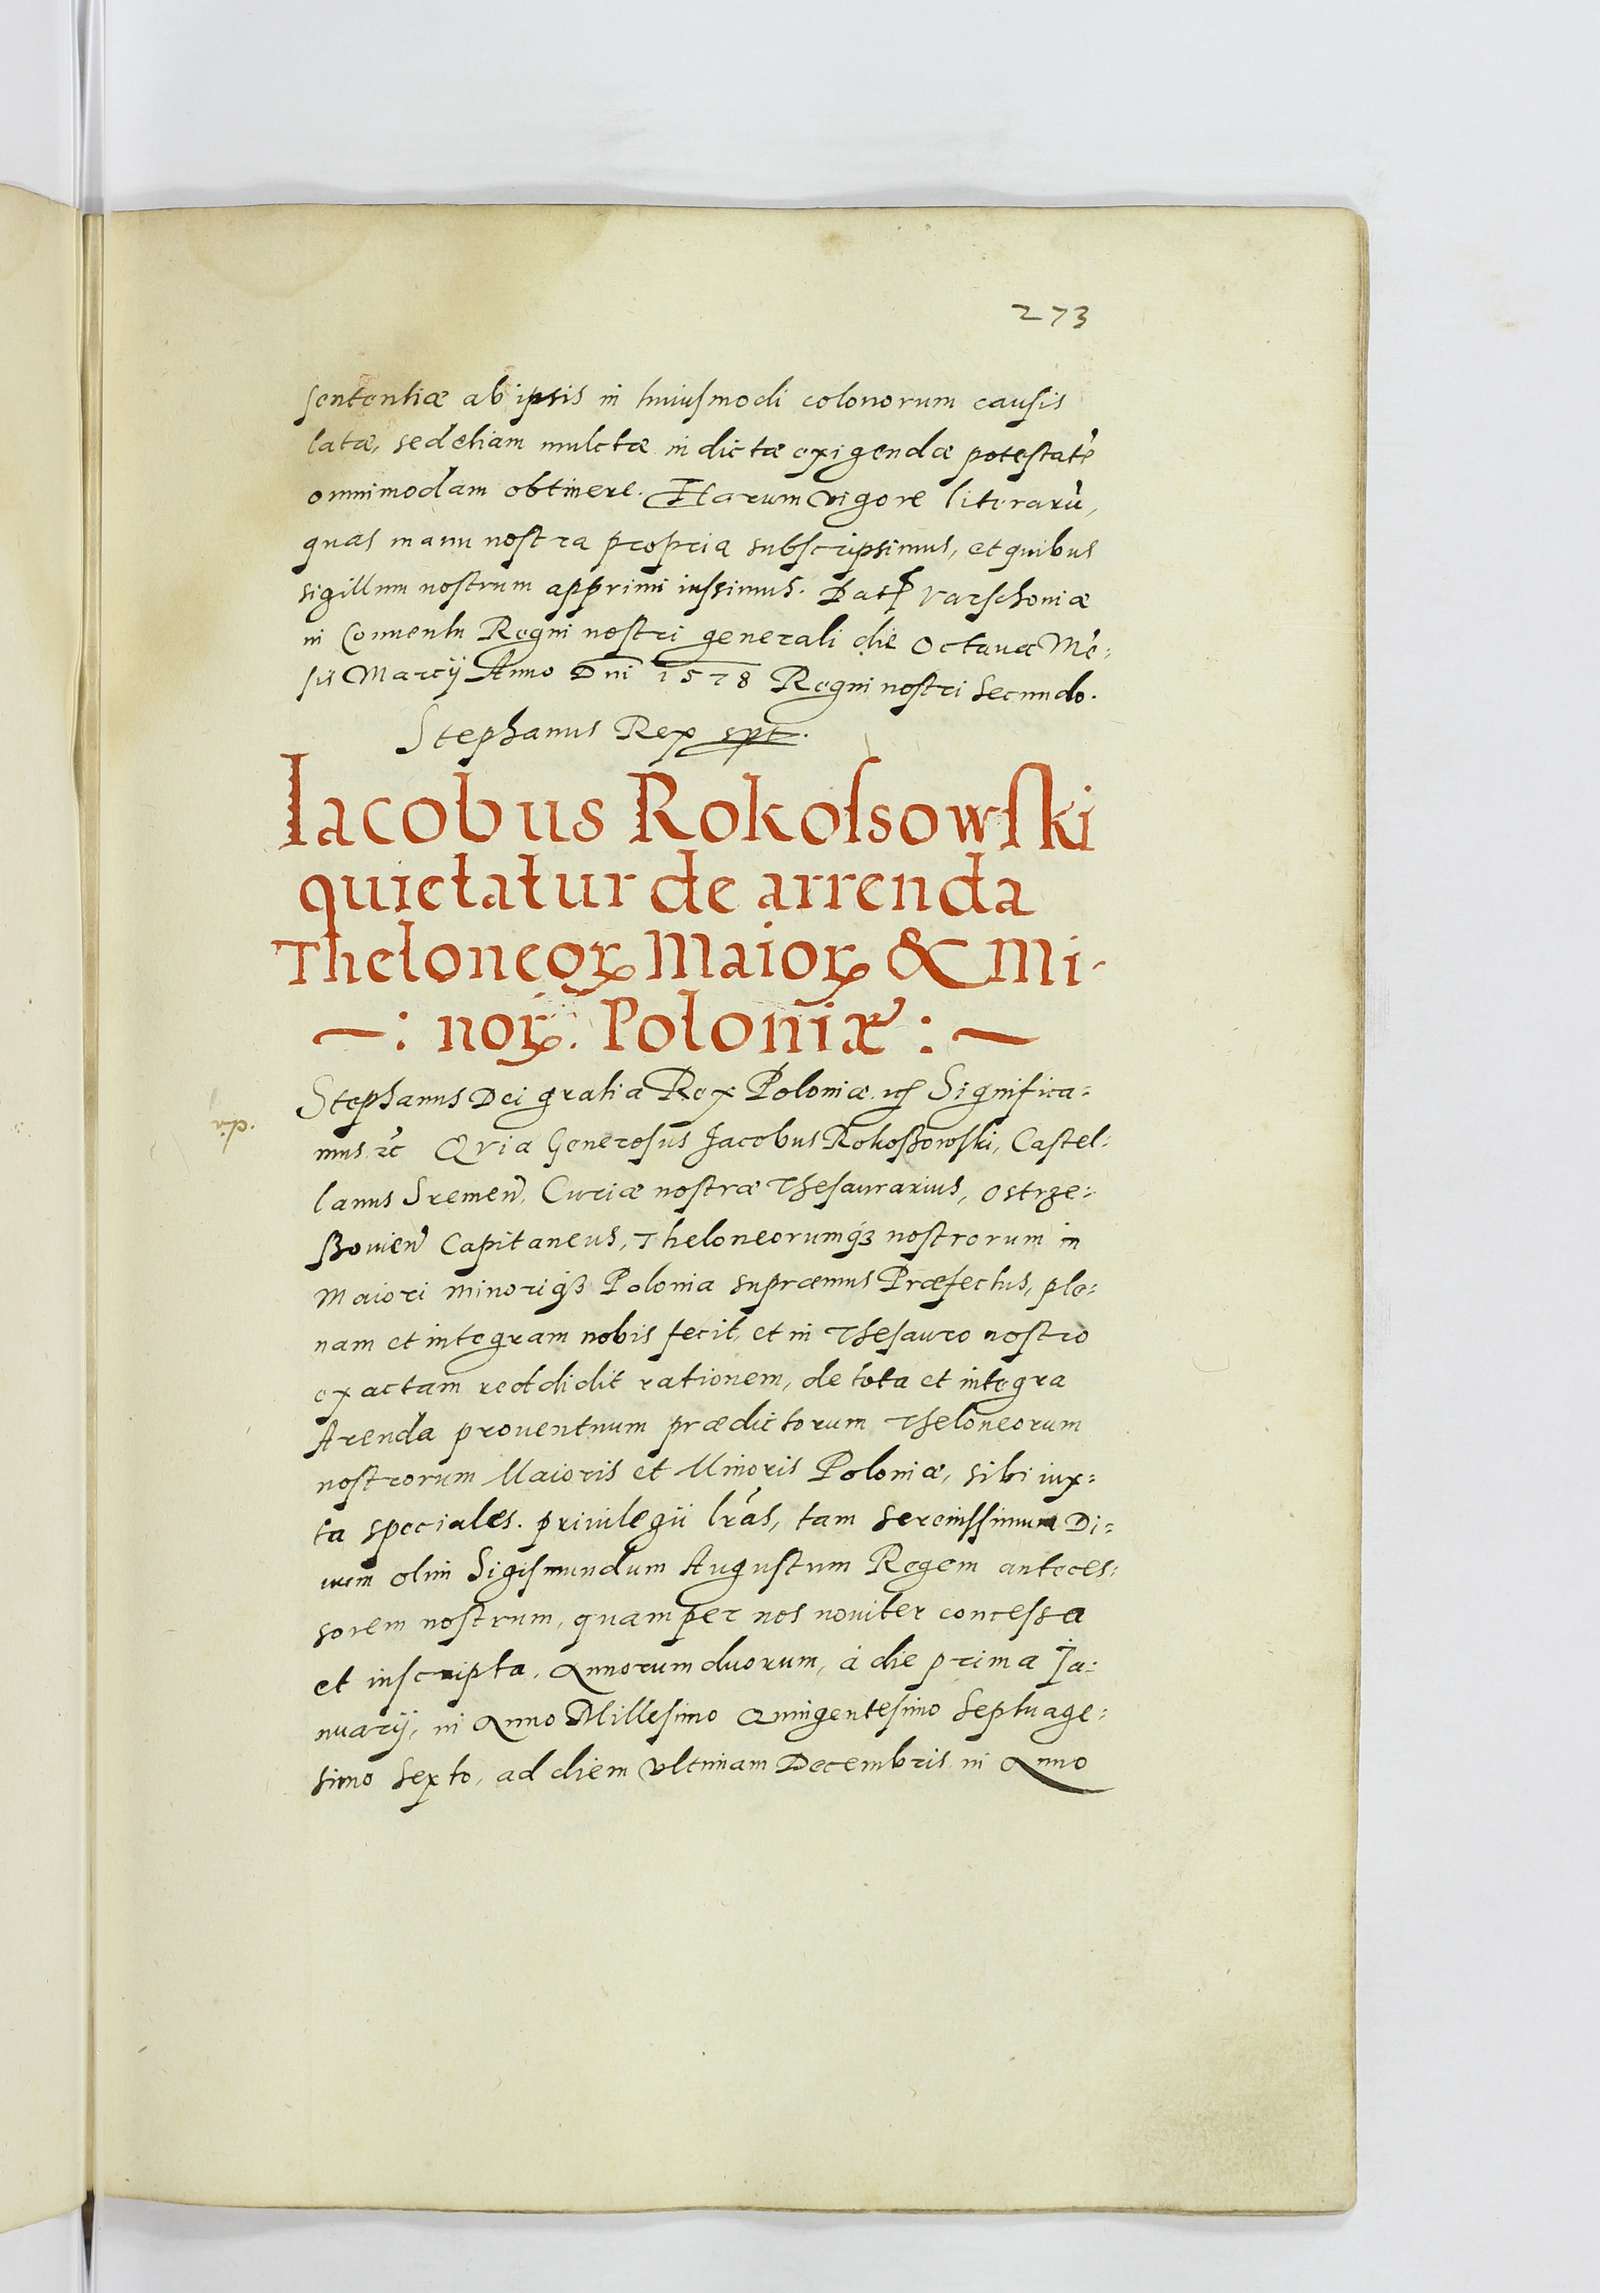 273
sententiæ ab ipsis in huiusmodi colonorum causis
latæ, sed etiam mulctæ indictæ exigendæ potestatē
omnimodam obtinere. Harum vigore literarū,
quas manu nostra propria subscripsimus, et quibus
sigillum nostrum apprimi iussimus. Dat Varschoviæ
in Conventu Regni nostri generali die Octava Mē:
sis Marcij Anno Dni 1578 Regni nostri Secundo.
Stephanus Rex spt.
Iacobus Rokoſsowſki
quietatur de arrenda
Theloneoꝝ Maioꝝ & Mi-
—: noꝝ. Poloniæ : —
Stephanus Dei gratia Rex Poloniæ. Significa:
mus ꝛc Qvia Generosus Jacobus Rokoßowski, Castel:
lanus Sremen, Curiæ nostræ Thesaurarius, Ostrze:
ßovien Capitaneus, Theloneorumqꝫ nostrorum in
Maiori minoriqꝫ Polonia supræmus Præfectus, ple:
nam et integram nobis fecit, et in Thesauro nostro
exactam reddidit rationem, de tota et integra
Arenda proventuum prædictorum Theloneorum
nostrorum Maioris et Minoris Poloniæ, sibi iux:
ta speciales. privilegii lrās, tam Serenissimum Di:
vum olim Sigismundum Augustum Regem anteces:
sorem nostrum, quam per nos noviter concessa
et inscripta, Annorum duorum, à die prima Ja:
nuarij, in Anno Millesimo Quingentesimo Septuage:
simo Sexto, ad diem Vltimam Decembris in Anno